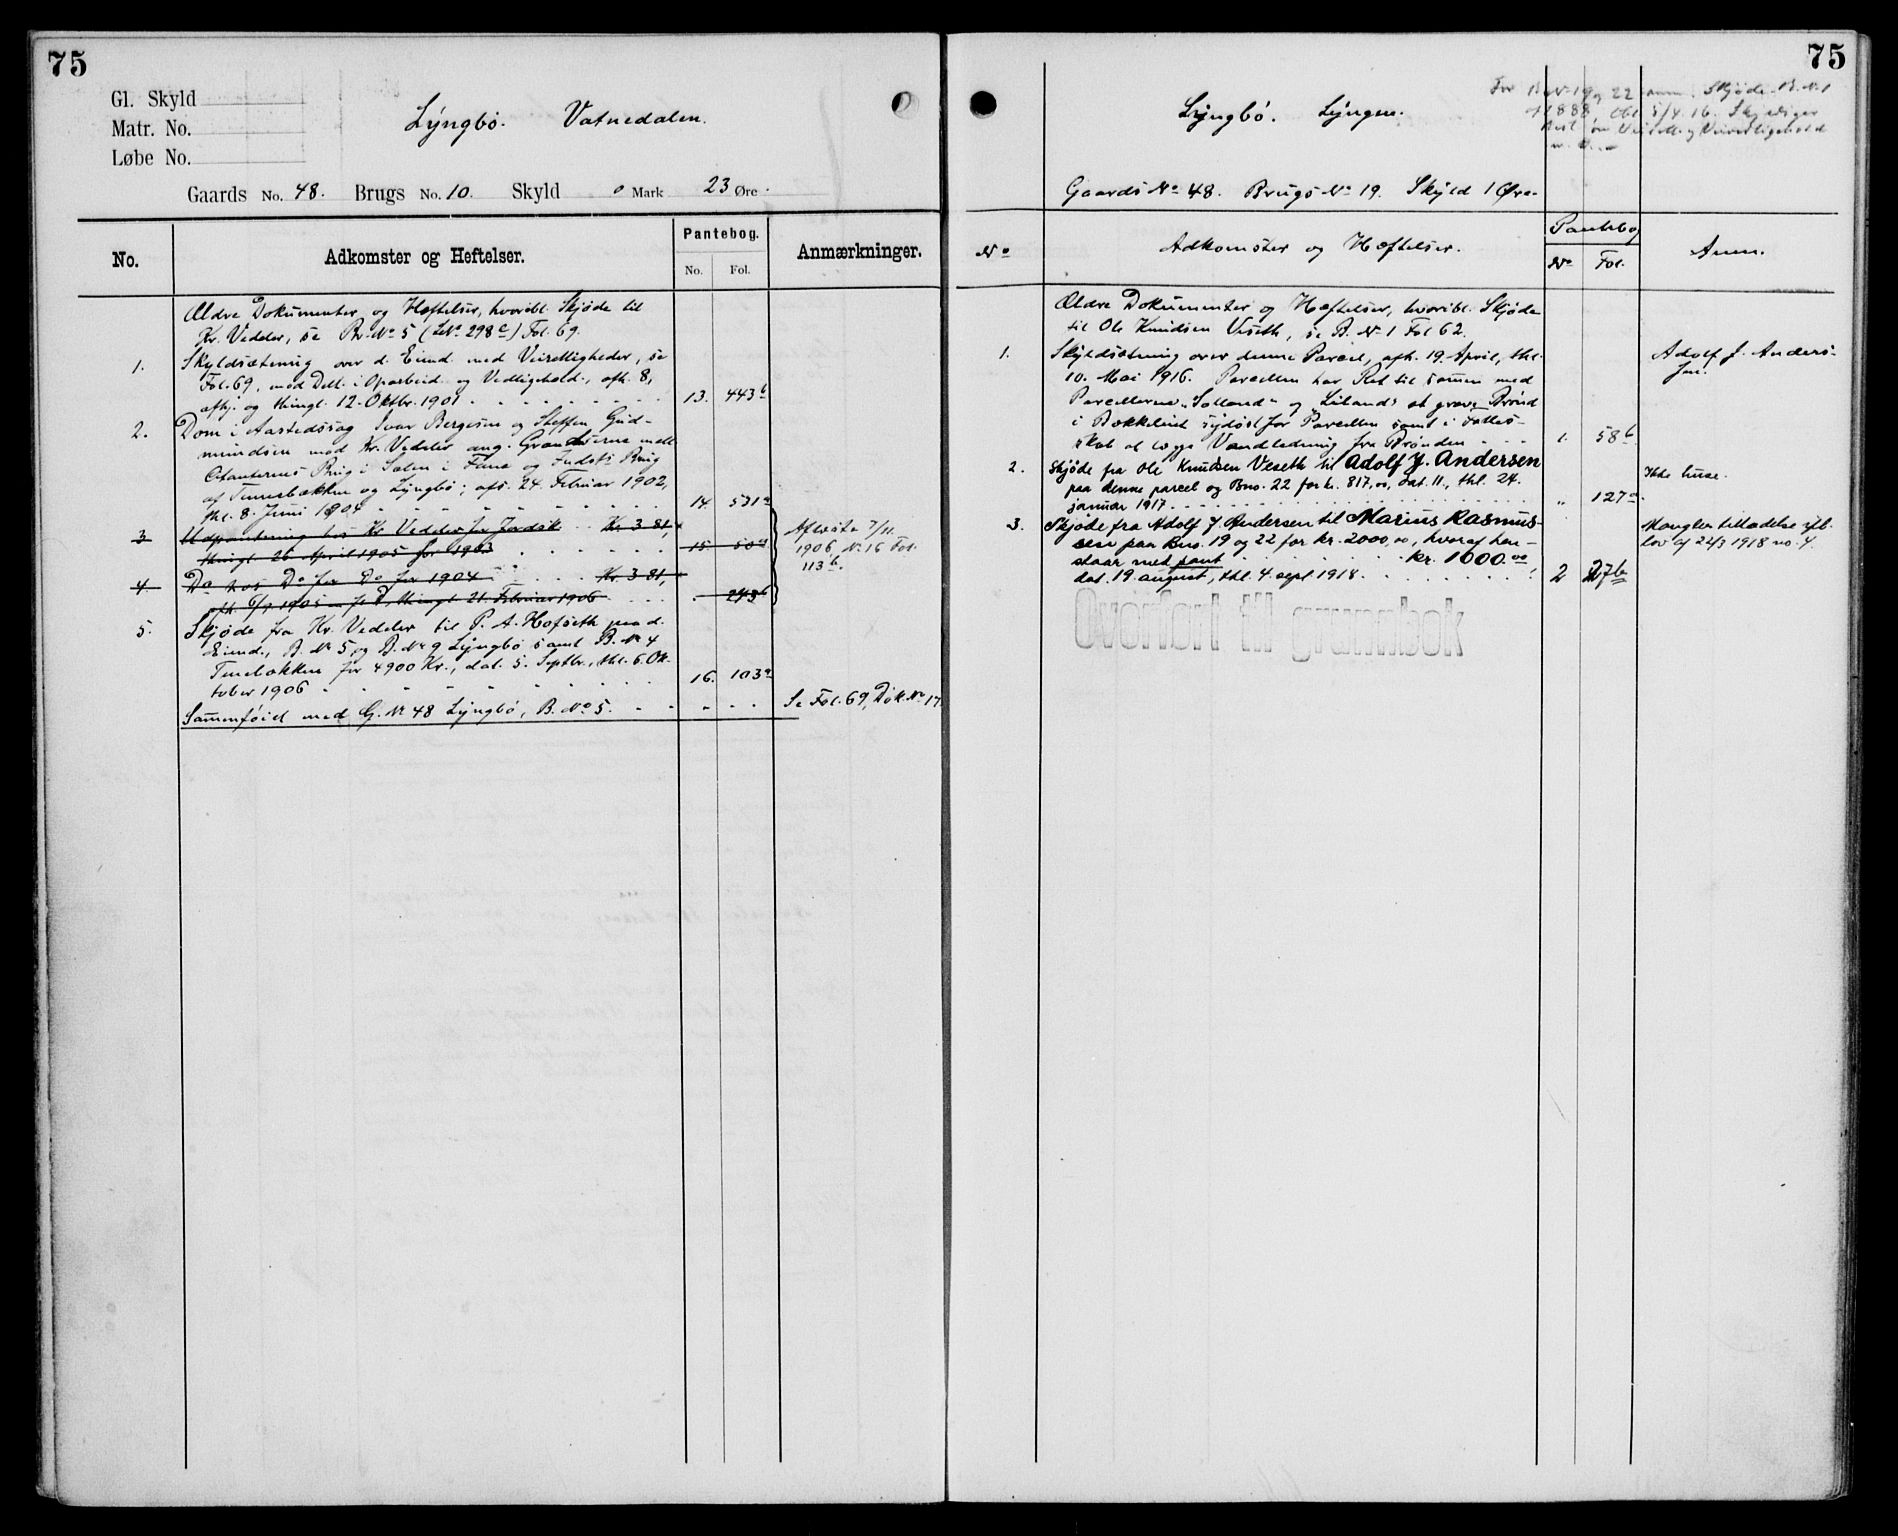 75
Gl. Skyld
Matr. No.
Løbe No.
Lyngbö. Vatnedalen.
Gaards No. 48. Brugs No. 10. Skyld 0 Mark 23 Øre.
No.
Adkomster og Heftelser.
Pantebog.
No. Fol.
Anmærkninger.
Ældre Dokumenter og Hæftelser, hvoribl. Skjøde til
Kr. Vedeler, se Br. No 5 (LNo. 298c) Fol. 69.
1. Skyldsætning over d. Eiend. med Veirettigheder, se
Fol. 69, med Delt. i Oparbeid. og Vedligehold., afh. 8,
afhj. og thingl. 12. Oktbr. 1901 13. 443b
2. Dom i Aastedssag Ivar Bergesen og Steffen Gud-
mundsen mod Kr. Vedeler ang. Grændserne mell.
Citanternes Brug i Sælen i Fane og Indst.s Brug
af Tennebækken og Lyngbö; afs. 24. Februar 1902,
thl. 8. Juni 1904 14. 531a
3 Udpantning hos Kr Vedeler for Jordsk. Kr 3.81,
thingl. 26 April 1905 for 1903 15. 50a
4 Do hos Do for Do for 1904 Kr 3.81,
afh. 6/9 1905 thingl. 21. Februar 1906 " 243b
Aflæste 7/11.
1906, No. 16 Fol.
113b.
5. Skjøde fra Kr. Vedeler til P. A. Hofseth paa d.
Eiend., B. No 5 og B. No 9 Lyngbö samt B. No 4
Tenebækken for 4900 Kr., dat. 5. Septbr., thl. 6. Ok-
tober 1906 16. 103a
Sammenføiet med G. No 48 Lyngbö, B. No 5. Se Fol. 69, Dok. No 17.
75
Lyngbö. Lyngen.
For B.No 19 og 22 anm. Skjøde B. No 1
1888, Obl. 5/4.16.
Gaards No 48. Brugs No 19. Skyld 1 Øre.
No
Adkomster og Hæftelser.
Pantebog
No Fol.
Anm.
Ældre Dokumenter og Hæftelser, hvoribl. Skjøde
til Ole Knudsen Veseth, se B. No 1 Fol 62.
1. Skyldsætning over denne Parcel, afh. 19. April, thl.
10. Mai 1916. Parcellen har Ret til sammen med
Parcellerne "Solland" og "Liland" at grave Brönd
i Bakkeliet sydöst for Parcellen samt i Fælles-
skab at lægge Vandledning fra Brönden 1. 58b
Adolf J. Anders-
sen.
2. Skjøde fra Ole Knudsen Veseth til Adolf J. Andersen
paa denne parcel og Bno. 22 for kr. 817,00, dat. 11., thl. 24.
januar 1917 " 127a
Ikke huse.
3. Skjøde fra Adolf J. Andersen til Marius Rasmus-
sen paa Bno. 19 og 22 for kr. 2000,00, hvoraf hen-
staar med pant kr. 1600.00
dat. 19. august, thl. 4. sept. 1918. 2 27b
Mangler tilladelse efl.
lov af 22/3 1918 no. 4.
Overført til grunnbok